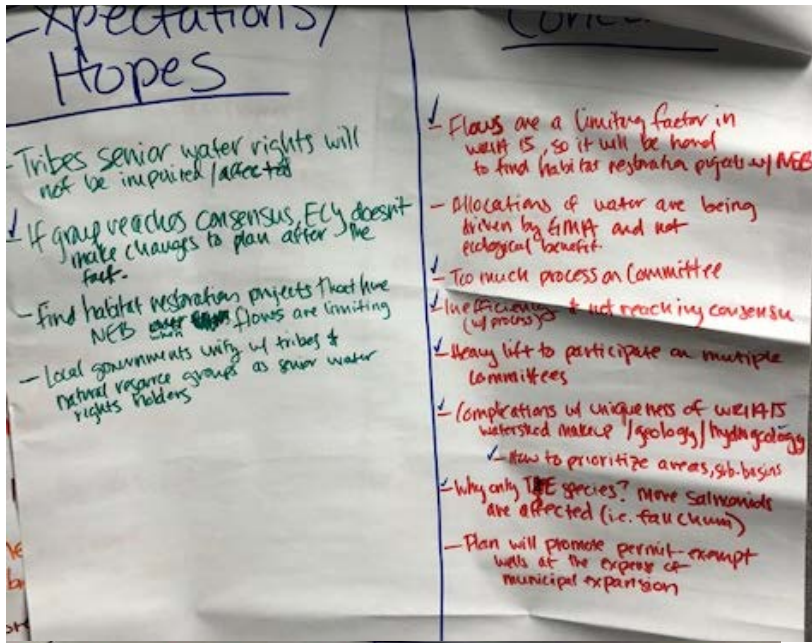 Expectations/
Hopes
- Tribes senior water rights will
not be impaired/affected
✓ If group reaches consensus, ECY doesn't
make changes to plan after the
fact.
- Find habitat restoration projects that have
NEB when flows are limiting
- Local governments unify w/ tribes &
natural resource groups as senior water
rights holders
✓- Flows are a limiting factor in
WRIA 15, so it will be hard
to find habitat restoration projects w/ NEB
- Allocations of water are being
driven by GMA and not
ecological benefit.
✓- Too much process on Committee
✓- Inefficiency & not reaching consensu
(w/ process)
✓- Heavy lift to participate on multiple
committees
✓- Complications w/ uniqueness of WRIA 15
watershed makeup /geology/hydrogeology
✓- How to prioritize areas, sub-basins
✓- Why only T&E species? More salmonids
are affected (i.e. fall chum)
- Plan will promote permit-exempt
wells at the expense of
municipal expansion